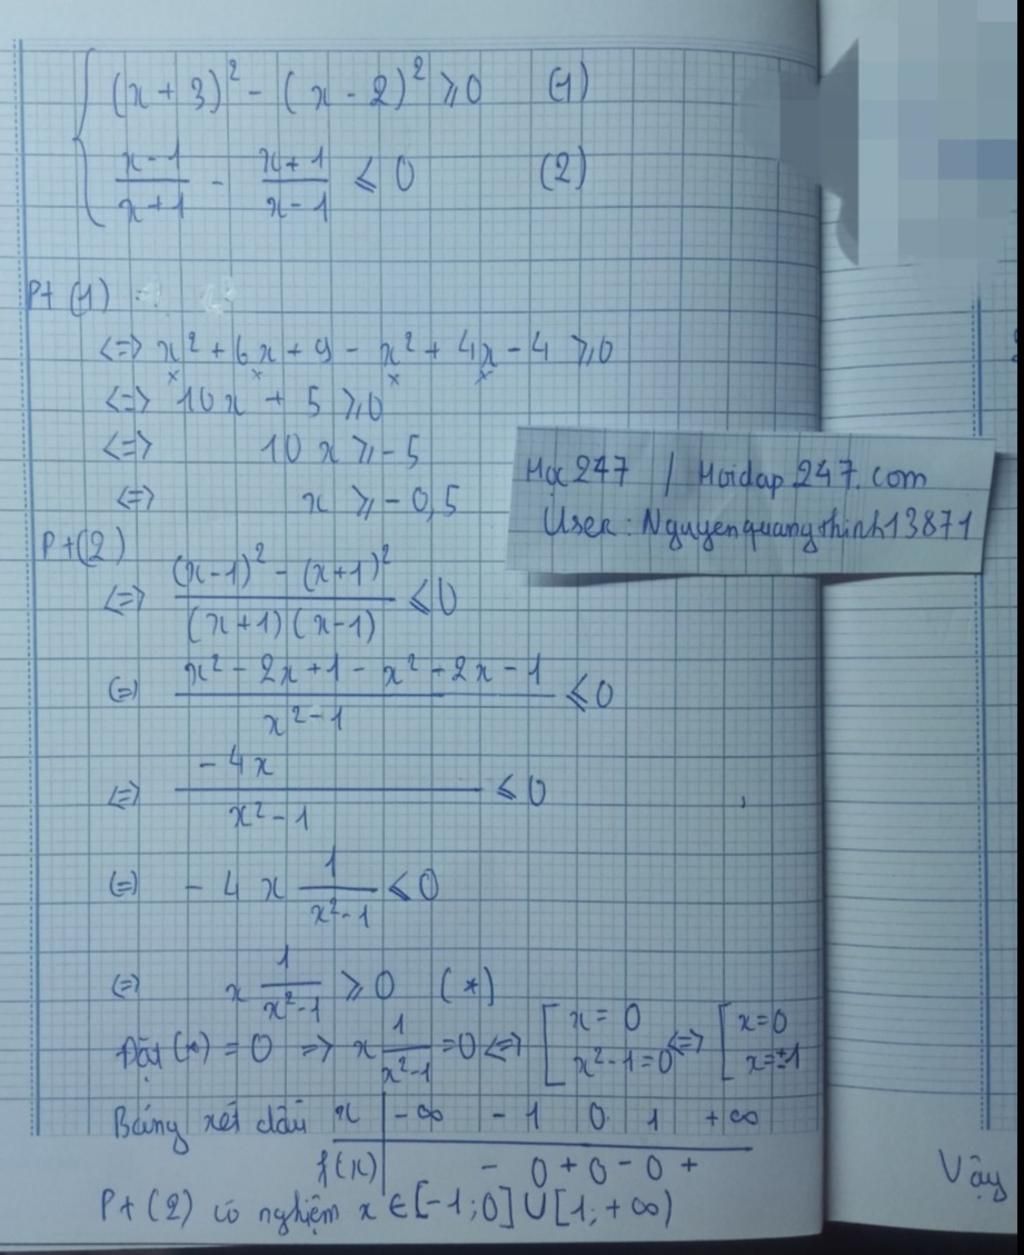 (x + 3)² - (x - 2)² ⩾ 0 (1)
(x-1)/(x+1) - (x+1)/(x-1) ⩽ 0 (2)
Pt (1)
<=> x² + 6x + 9 - x² + 4x - 4 ⩾ 0
<=> 10x + 5 ⩾ 0
<=> 10x ⩾ -5
<=> x ⩾ -0,5
Học 247 / Hoidap 247.com
User: Nguyenquangthinh13871
Pt (2)
<=> ((x-1)² - (x+1)²)/((x+1)(x-1)) ⩽ 0
(=) (x² - 2x + 1 - x² - 2x - 1)/(x² - 1) ⩽ 0
<=> (-4x)/(x² - 1) ⩽ 0
(=) - 4x 1/(x²-1) ⩽ 0
(=) x 1/(x²-1) ⩾ 0 (*)
Đặt (*) = 0 => x 1/(x²-1) = 0 <=> [ x = 0 x² - 1 = 0 <=> [ x = 0 x = ±1
Bảng xét dấu x | -∞ -1 0 1 +∞
f(x) | - 0 + 0 - 0 +
Pt (2) có nghiệm x ∈ [-1; 0] ∪ [1; +∞)
Vậy